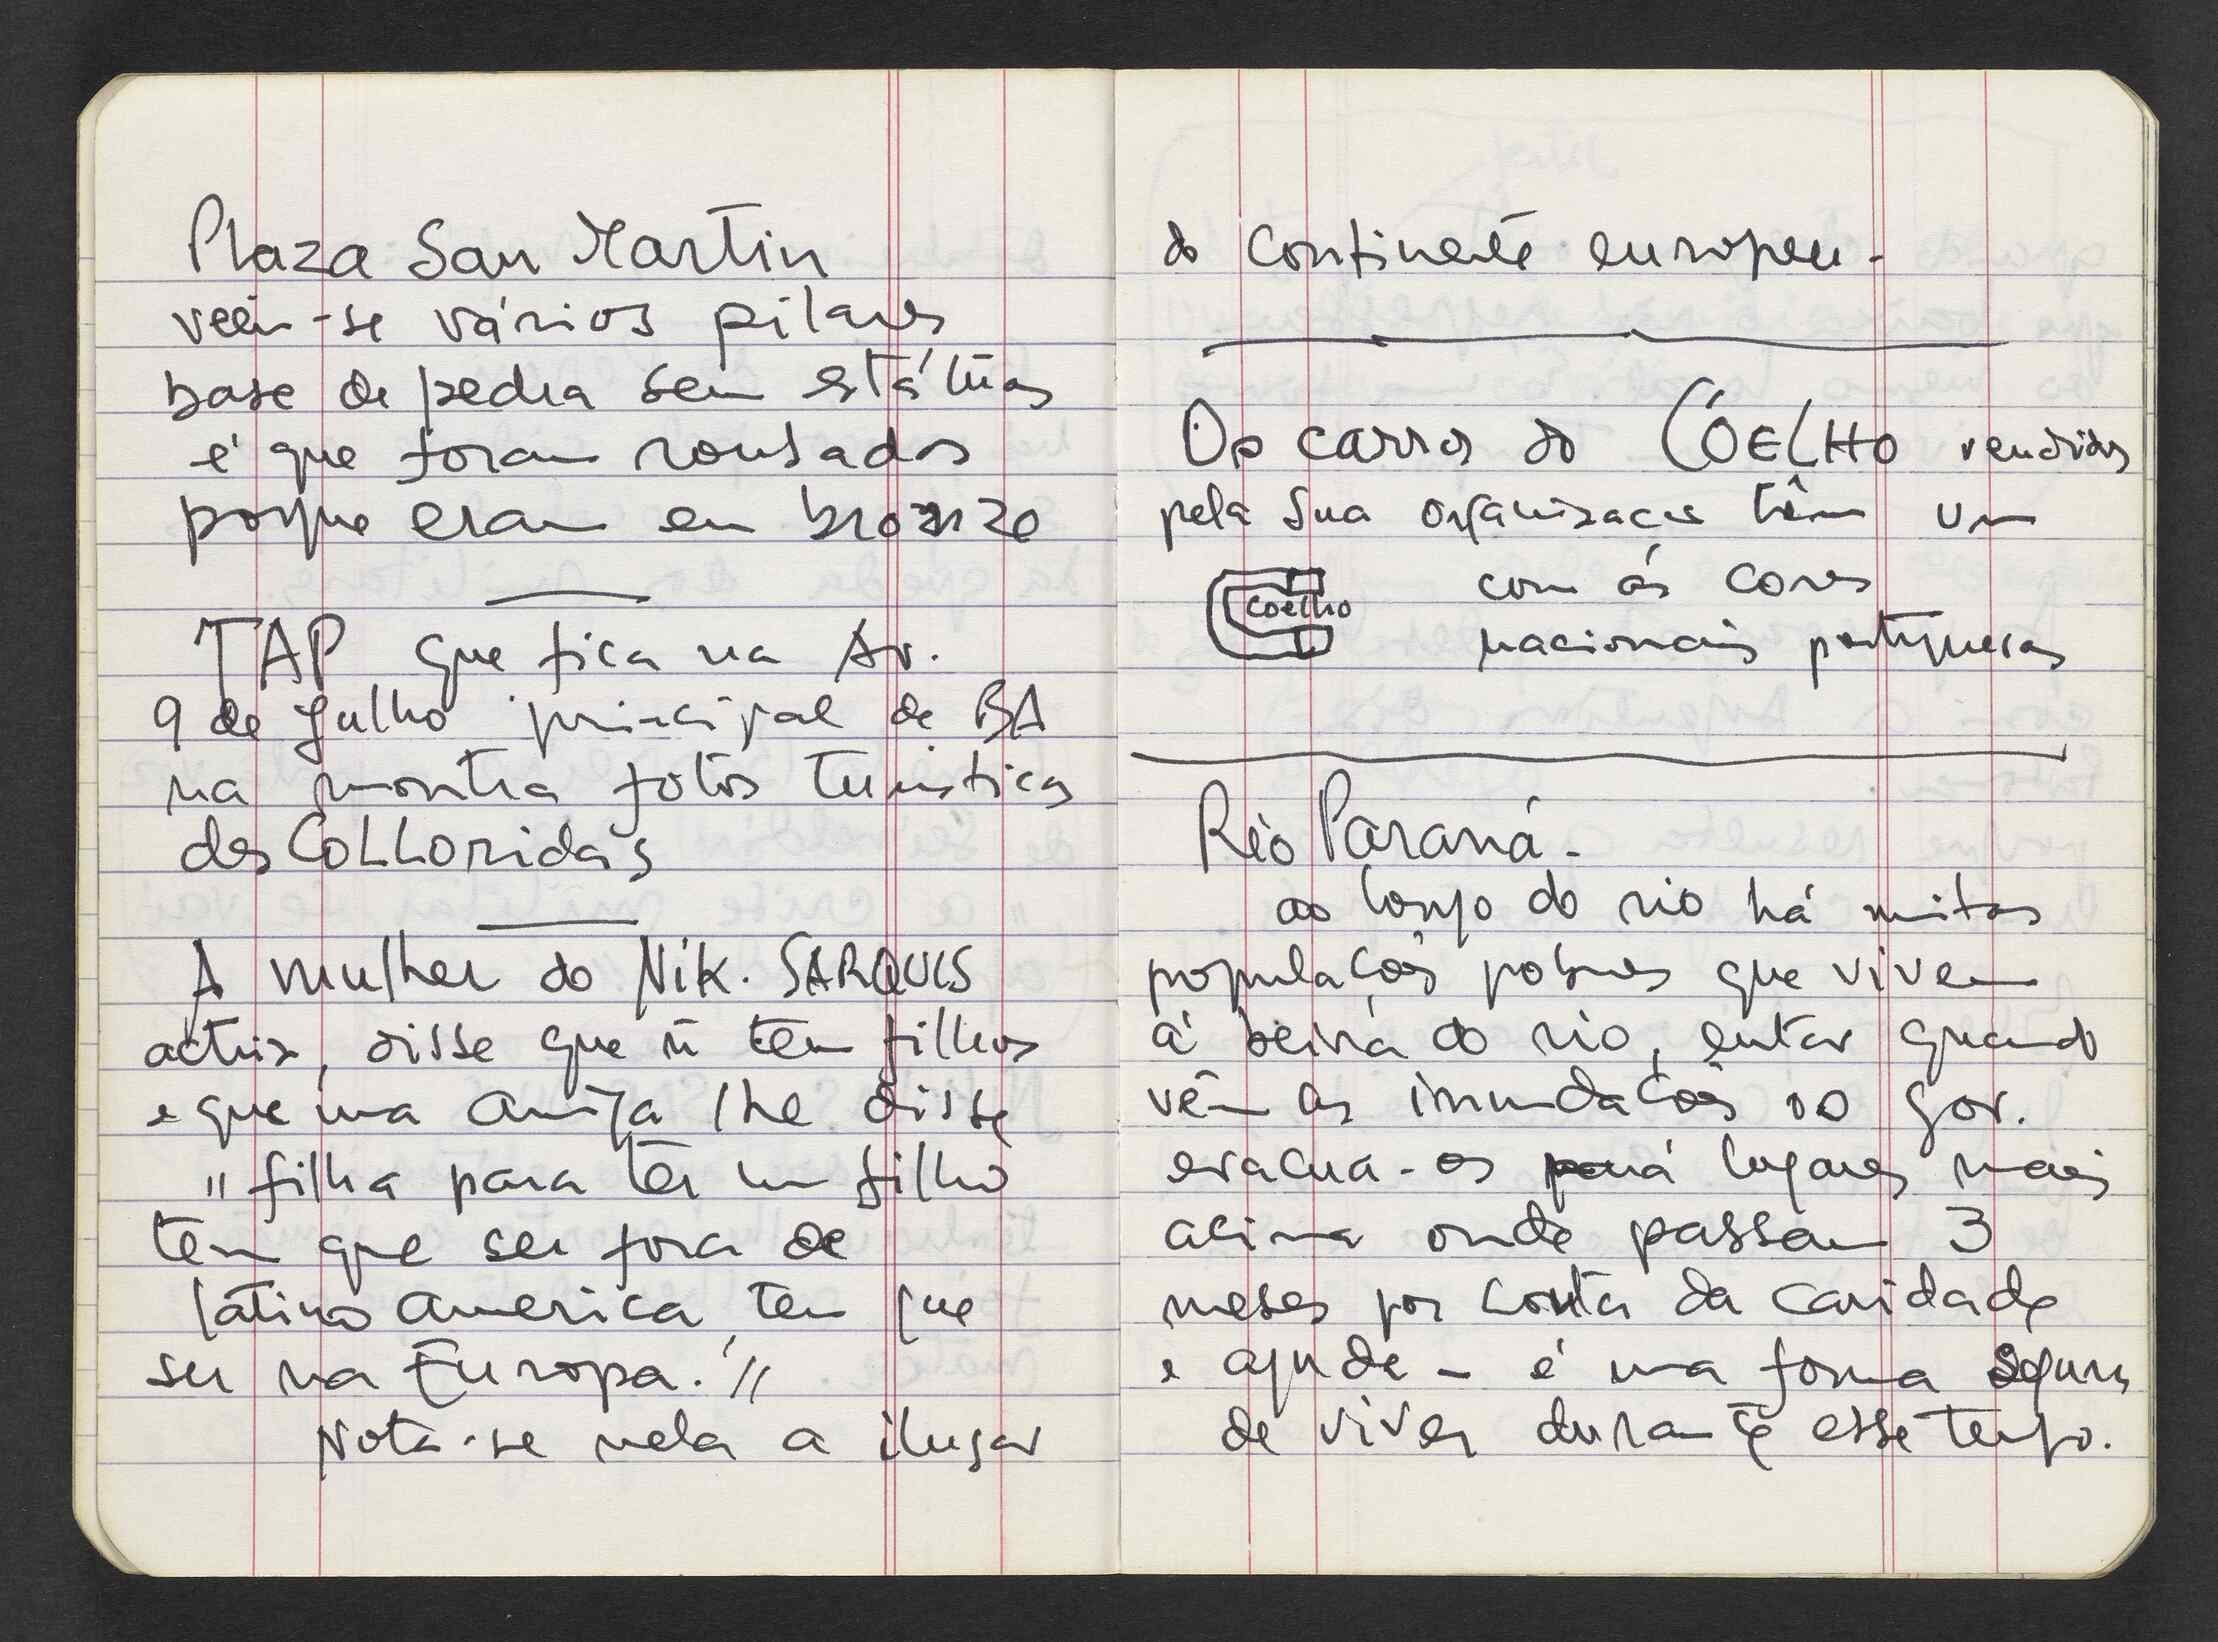 Plaza San Martin
vêem-se vários pilares
base de pedra sem estátuas
é que foram roubados
porque eram em bronze
TAP que fica na Av.
9 de Julho principal de BA
na montra fotos turísticas
das Colloridas
A mulher do Nik. SARQUIS
actriz, disse que ñ tem filhos
e que uma amiga lhe disse
"filha para ter um filho
tem que ser fora de
latino america, tem que
ser na Europa!"
Nota-se nela a ilusão
do continente europeu.
Os carros do COELHO vendidos
pela sua organização têm um
com as cores
coelho
nacionais portuguesas
Rio Paraná.
ao longo do rio há muitas
populações pobres que vivem
à beira do rio, então quando
vêm as inundações o gov.
evacua-os para lugares mais
acima onde passam 3
meses por conta da caridade
e ajuda - é uma forma segura
de viver durante esse tempo.